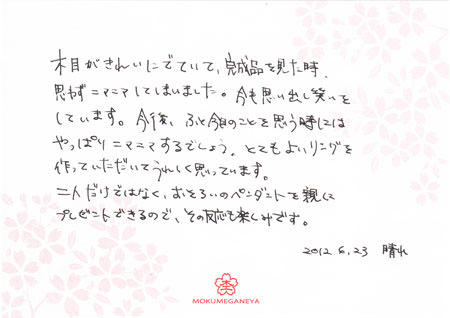 木目がきれいにでていて、完成品を見た時、
思わずニマニマしてしまいました。今も思い出し笑いを
しています。今後、ふと今日のことを思う時には
やっぱりニマニマするでしょう。とてもよいリングを
作っていただいてうれしく思っています。
二人だけではなく、おそろいのペンダントを親に
プレゼントできるので、その反応も楽しみです。
2012.6.23 晴れ
MOKUMEGANEYA